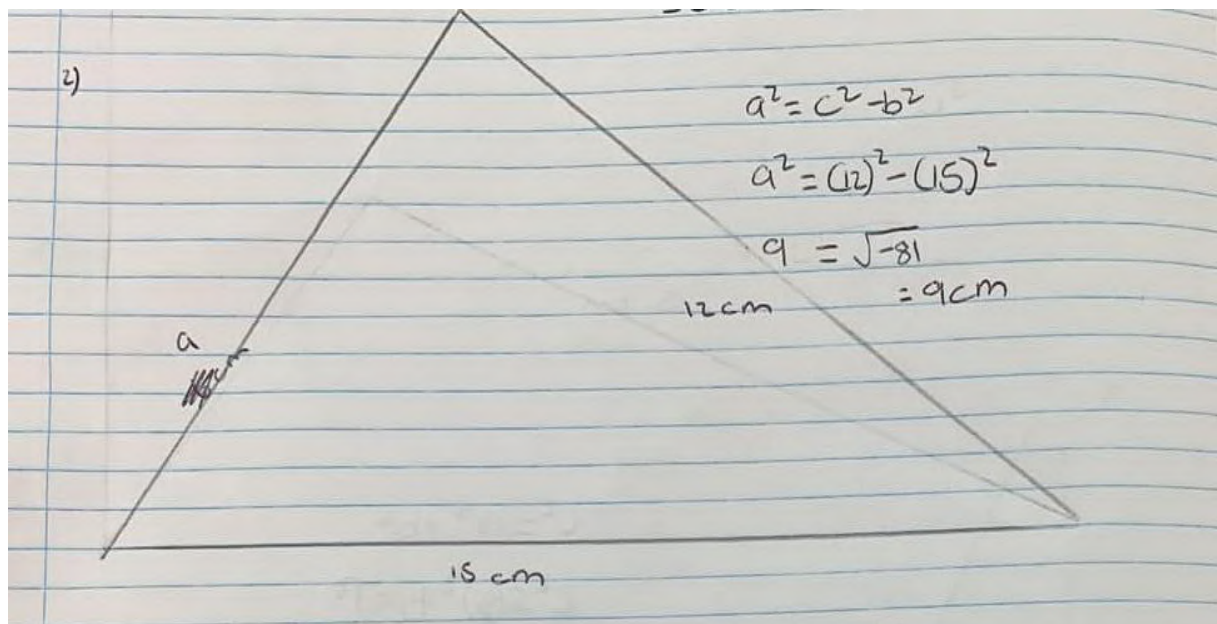 2)
a² = c² - b²
a² = (12)² - (15)²
a = √-81
= 9cm
12 cm
a
15 cm